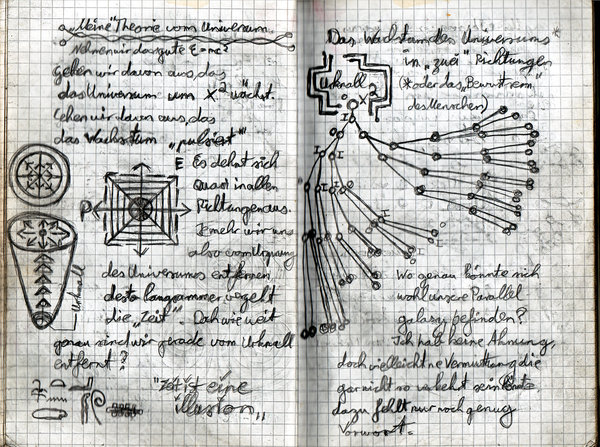 "Meine" Theorie vom Universum.
Nehmen wir das gute E=mc²
Gehen wir davon aus, das
das Universum um X² wächst.
Gehen wir davon aus, das
das Wachstum "pulsiert"
E Es dehnt sich
P
Quasi in allen
Richtungen aus.
Jemehr wir uns
also vom Ursprung
des Universums entfernen
desto langsammer vergeht
die "Zeit". Doch wie weit
genau sind wir gerade vom Urknall
entfernt?
Urknall
"Zeit ist eine
illusion"
Das Wachstum des Universums*
in "zwei" Richtungen
(*oder das "Bewusstsein"
des Menschen)
Urknall
X²
I
I I
I I
I
Wo genau könnte sich
wohl unsere Parallel
galaxy befinden?
Ich hab keine Ahnung,
doch vielleicht ne Vermuttung die
gar nicht so verkehrt sein
dazu fehlt nur noch genug
Vorwort.